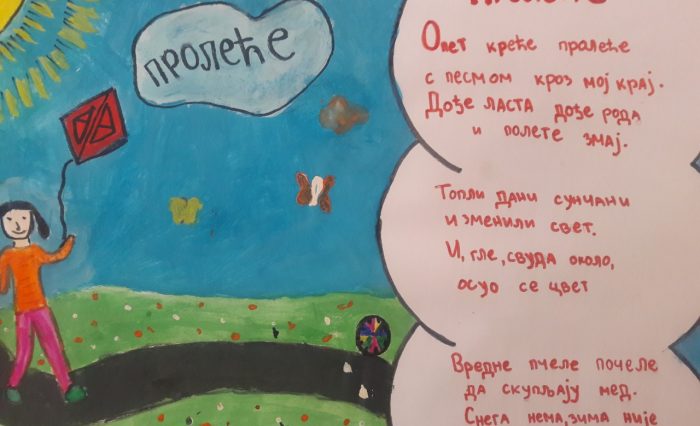 пролеће
Опет креће пралеће
с песмом кроз мој крај.
Дође ласта дође рода
и полете змај.
Топли дани сунчани
изменили свет.
И, гле, свуда около,
осуо се цвет
Вредне пчеле почеле
да скупљају мед.
Снега нема, зима није